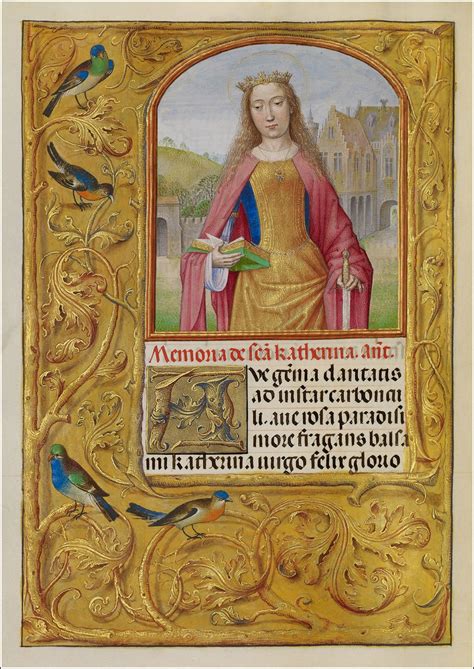 Memoria de sc̄a katherina. an̄t.
AVe gēma claritatis
ad instar carboncu
li. aue rosa paradisi
more fragans balsa
mi katherina uirgo felix glorio